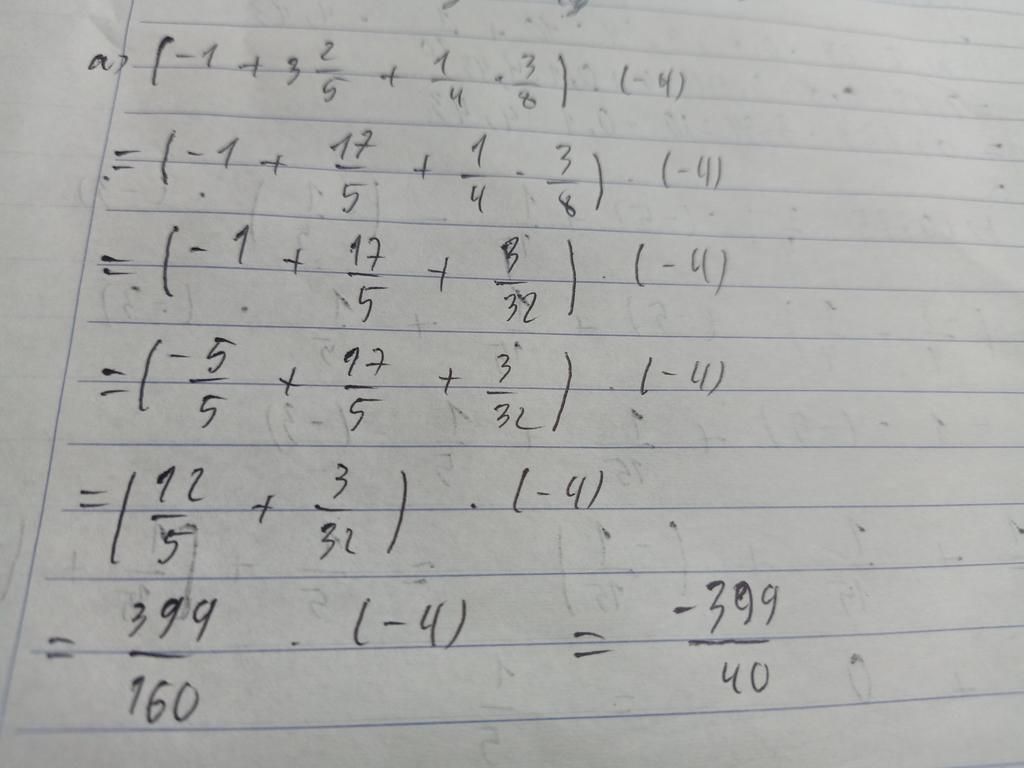 a) (-1 + 3 2/5 + 1/4 · 3/8) · (-4)
= (-1 + 17/5 + 1/4 · 3/8) · (-4)
= (-1 + 17/5 + 3/32) · (-4)
= (-5/5 + 17/5 + 3/32) · (-4)
= (12/5 + 3/32) · (-4)
= 399/160 · (-4) = -399/40